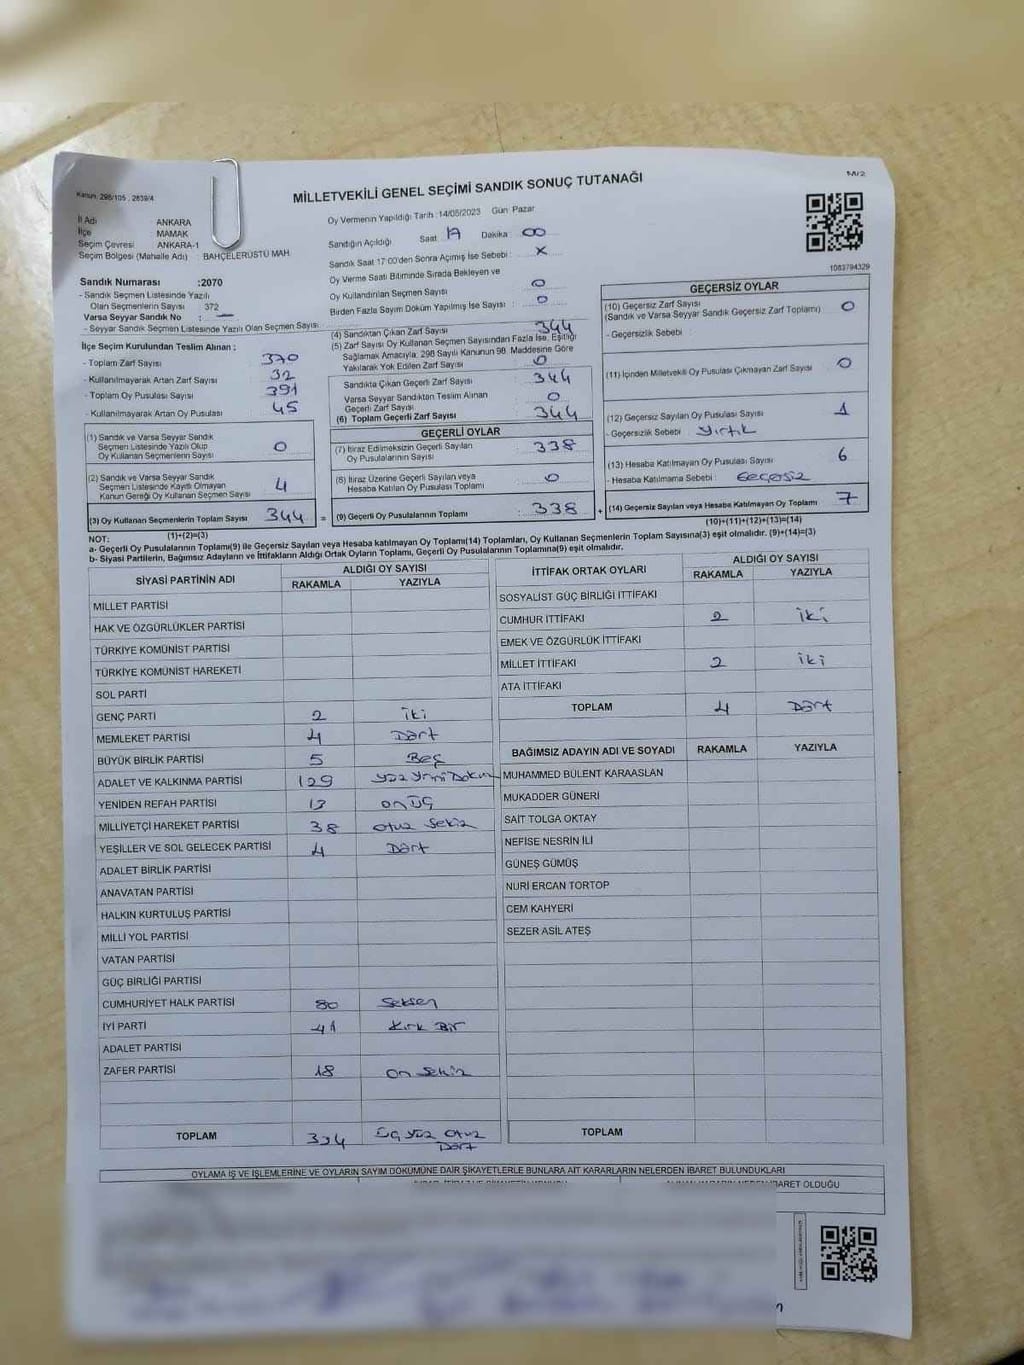 Kanun: 298/105, 2839/4
MİLLETVEKİLİ GENEL SEÇİMİ SANDIK SONUÇ TUTANAĞI
M/2
İl Adı ANKARA
İlçe MAMAK
Seçim Çevresi ANKARA-1
Seçim Bölgesi (Mahalle Adı) : BAHÇELERÜSTÜ MAH.
Oy Vermenin Yapıldığı Tarih :14/05/2023 Gün: Pazar
Sandığın Açıldığı Saat 17 Dakika 00
Sandık Saat 17:00'den Sonra Açımış İse Sebebi : X
Oy Verme Saati Bitiminde Sırada Bekleyen ve
Oy Kullandırılan Seçmen Sayısı : 0
Birden Fazla Sayım Döküm Yapılmış İse Sayısı : 0
1083794329
Sandık Numarası :2070
- Sandık Seçmen Listesinde Yazılı
Olan Seçmenlerin Sayısı 372
Varsa Seyyar Sandık No : —
- Seyyar Sandık Seçmen Listesinde Yazılı Olan Seçmen Sayısı :
İlçe Seçim Kurulundan Teslim Alınan :
- Toplam Zarf Sayısı : 370
- Kullanılmayarak Artan Zarf Sayısı : 32
- Toplam Oy Pusulası Sayısı : 391
- Kullanılmayarak Artan Oy Pusulası : 45
(1) Sandık ve Varsa Seyyar Sandık
Seçmen Listesinde Yazılı Olup
Oy Kullanan Seçmenlerin Sayısı : 0
(2) Sandık ve Varsa Seyyar Sandık
Seçmen Listesinde Kayıtlı Olmayan
Kanun Gereği Oy Kullanan Seçmen Sayısı : 4
(3) Oy Kullanan Seçmenlerin Toplam Sayısı : 344
(1)+(2)=(3)
(4) Sandıktan Çıkan Zarf Sayısı : 344
(5) Zarf Sayısı Oy Kullanan Seçmen Sayısından Fazla İse, Eşitliği
Sağlamak Amacıyla; 298 Sayılı Kanunun 98. Maddesine Göre
Yakılarak Yok Edilen Zarf Sayısı : 0
Sandıkta Çıkan Geçerli Zarf Sayısı : 344
Varsa Seyyar Sandıktan Teslim Alınan
Geçerli Zarf Sayısı : 0
(6) Toplam Geçerli Zarf Sayısı : 344
GEÇERLİ OYLAR
(7) İtiraz Edilmeksizin Geçerli Sayılan
Oy Pusulalarının Sayısı : 338
(8) İtiraz Üzerine Geçerli Sayılan veya
Hesaba Katılan Oy Pusulası Toplamı : 0
= (9) Geçerli Oy Pusulalarının Toplamı : 338
GEÇERSİZ OYLAR
(10) Geçersiz Zarf Sayısı
(Sandık ve Varsa Seyyar Sandık Geçersiz Zarf Toplamı) : 0
- Geçersizlik Sebebi :
(11) İçinden Milletvekili Oy Pusulası Çıkmayan Zarf Sayısı : 0
(12) Geçersiz Sayılan Oy Pusulası Sayısı : 1
- Geçersizlik Sebebi : Yırtık
(13) Hesaba Katılmayan Oy Pusulası Sayısı : 6
- Hesaba Katılmama Sebebi : Geçersiz
+ (14) Geçersiz Sayılan veya Hesaba Katılmayan Oy Toplamı : 7
(10)+(11)+(12)+(13)=(14)
NOT:
a- Geçerli Oy Pusulalarının Toplamı(9) ile Geçersiz Sayılan veya Hesaba Katılmayan Oy Toplamı(14) Toplamları, Oy Kullanan Seçmenlerin Toplam Sayısına(3) eşit olmalıdır. (9)+(14)=(3)
b- Siyasi Partilerin, Bağımsız Adayların ve İttifakların Aldığı Ortak Oyların Toplamı, Geçerli Oy Pusulalarının Toplamına(9) eşit olmalıdır.
SİYASİ PARTİNİN ADI ALDIĞI OY SAYISI
RAKAMLA YAZIYLA
MİLLET PARTİSİ
HAK VE ÖZGÜRLÜKLER PARTİSİ
TÜRKİYE KOMÜNİST PARTİSİ
TÜRKİYE KOMÜNİST HAREKETİ
SOL PARTİ
GENÇ PARTİ 2 iki
MEMLEKET PARTİSİ 4 Dört
BÜYÜK BİRLİK PARTİSİ 5 Beş
ADALET VE KALKINMA PARTİSİ 129 yüz yirmi Dokuz
YENİDEN REFAH PARTİSİ 13 on üç
MİLLİYETÇİ HAREKET PARTİSİ 38 otuz sekiz
YEŞİLLER VE SOL GELECEK PARTİSİ 4 Dört
ADALET BİRLİK PARTİSİ
ANAVATAN PARTİSİ
HALKIN KURTULUŞ PARTİSİ
MİLLİ YOL PARTİSİ
VATAN PARTİSİ
GÜÇ BİRLİĞİ PARTİSİ
CUMHURİYET HALK PARTİSİ 80 seksen
İYİ PARTİ 41 kırk Bir
ADALET PARTİSİ
ZAFER PARTİSİ 18 on sekiz
TOPLAM 334 üç yüz otuz Dört
İTTİFAK ORTAK OYLARI ALDIĞI OY SAYISI
RAKAMLA YAZIYLA
SOSYALİST GÜÇ BİRLİĞİ İTTİFAKI
CUMHUR İTTİFAKI 2 iki
EMEK VE ÖZGÜRLÜK İTTİFAKI
MİLLET İTTİFAKI 2 iki
ATA İTTİFAKI
TOPLAM 4 Dört
BAĞIMSIZ ADAYIN ADI VE SOYADI RAKAMLA YAZIYLA
MUHAMMED BÜLENT KARAASLAN
MUKADDER GÜNERİ
SAİT TOLGA OKTAY
NEFİSE NESRİN İLİ
GÜNEŞ GÜMÜŞ
NURİ ERCAN TORTOP
CEM KAHYERİ
SEZER ASİL ATEŞ
TOPLAM
OYLAMA İŞ VE İŞLEMLERİNE VE OYLARIN SAYIM DÖKÜMÜNE DAİR ŞİKAYETLERLE BUNLARA AİT KARARLARIN NELERDEN İBARET BULUNDUKLARI
İBARET OLDUĞU